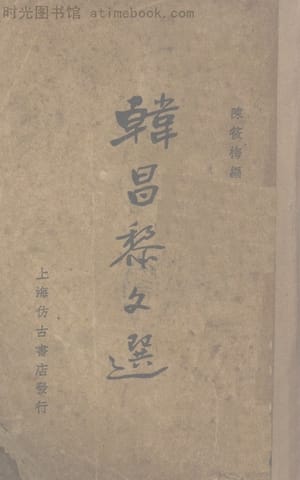 时光图书馆 - atimebook.com
陳筱梅編
韓昌黎文選
上海仿古書店發行